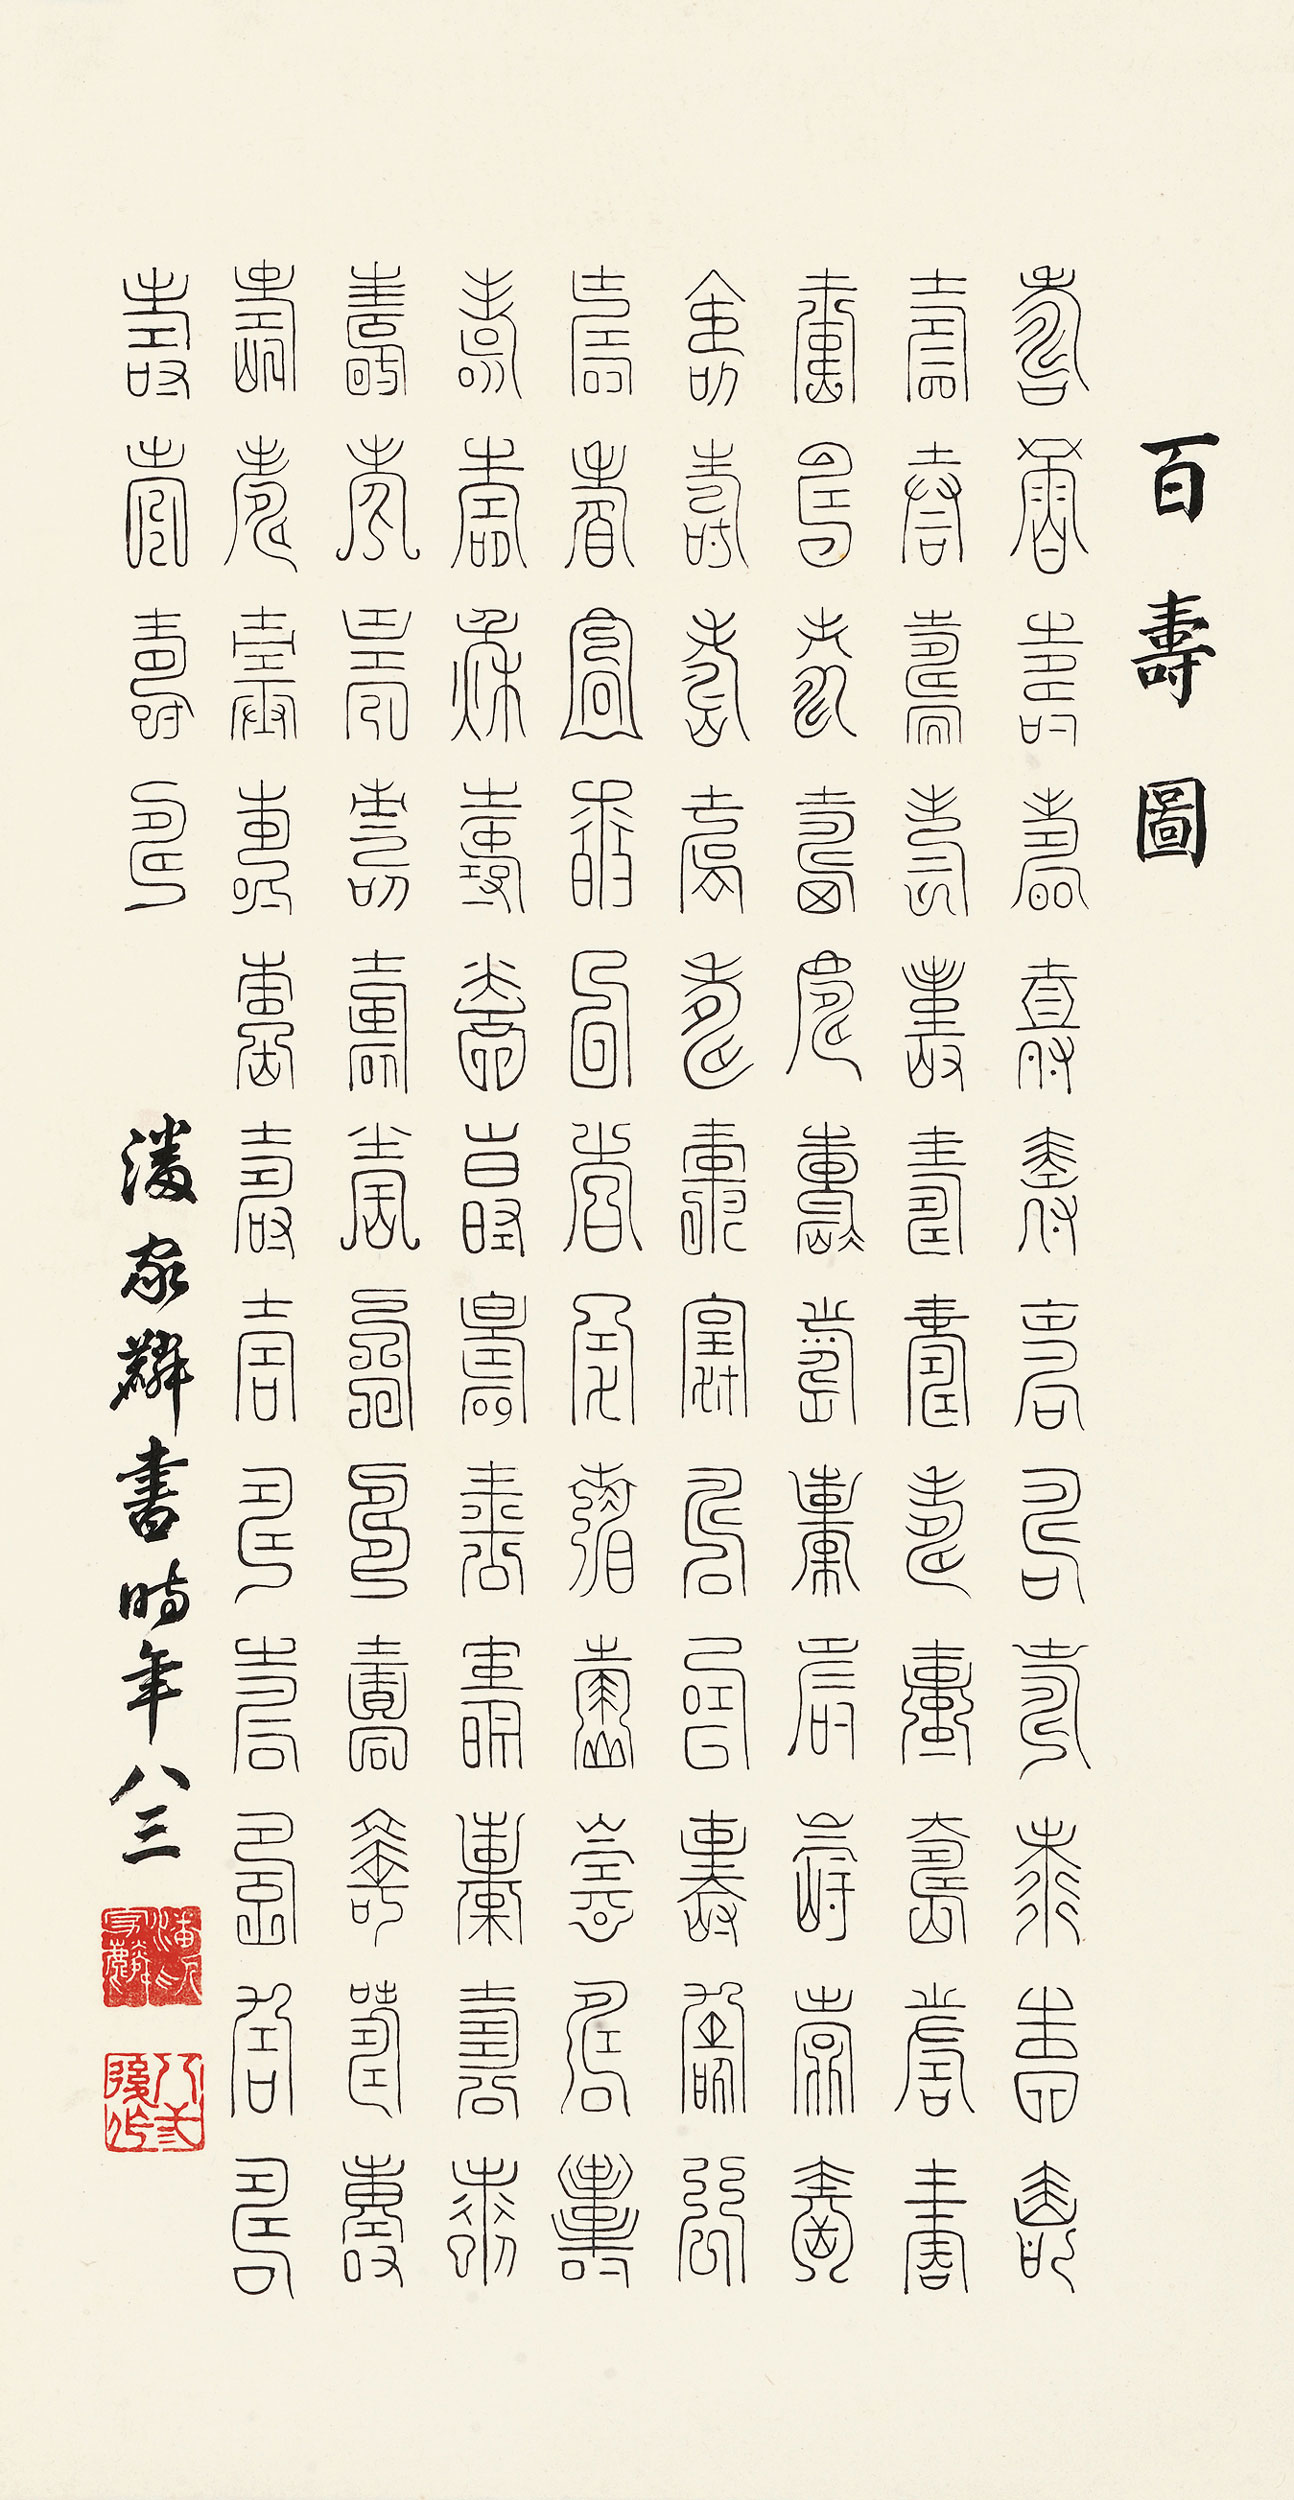 百壽圖
壽壽壽壽壽壽壽壽壽壽壽壽
壽壽壽壽壽壽壽壽壽壽壽壽
壽壽壽壽壽壽壽壽壽壽壽壽
壽壽壽壽壽壽壽壽壽壽壽壽
壽壽壽壽壽壽壽壽壽壽壽壽
壽壽壽壽壽壽壽壽壽壽壽壽
壽壽壽壽壽壽壽壽壽壽壽壽
壽壽壽壽壽壽壽壽壽壽壽壽
壽壽壽壽 潘家麟書時年八三